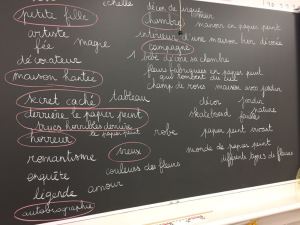 échelle
petite fille
artiste
fée
magie
décorateur
maison hantée
secret caché
tableau
derrière le papier peint
trucs horribles derrière
le papier peint
horreur
romantisme
vieux
robe
enquête
couleurs des fleurs
légende
amour
autobiographie
décor de cirque
chambre
manoir en papier peint
intérieur d'une maison bien décorée
campagne
1 bébé dans sa chambre
fleurs fabriquées en papier peint
qui tombent du ciel
champ de roses
maison avec jardin
décor
jardin
nature
skateboard
feuilles
papier peint vivant
monde de papier peint
différents types de fleurs